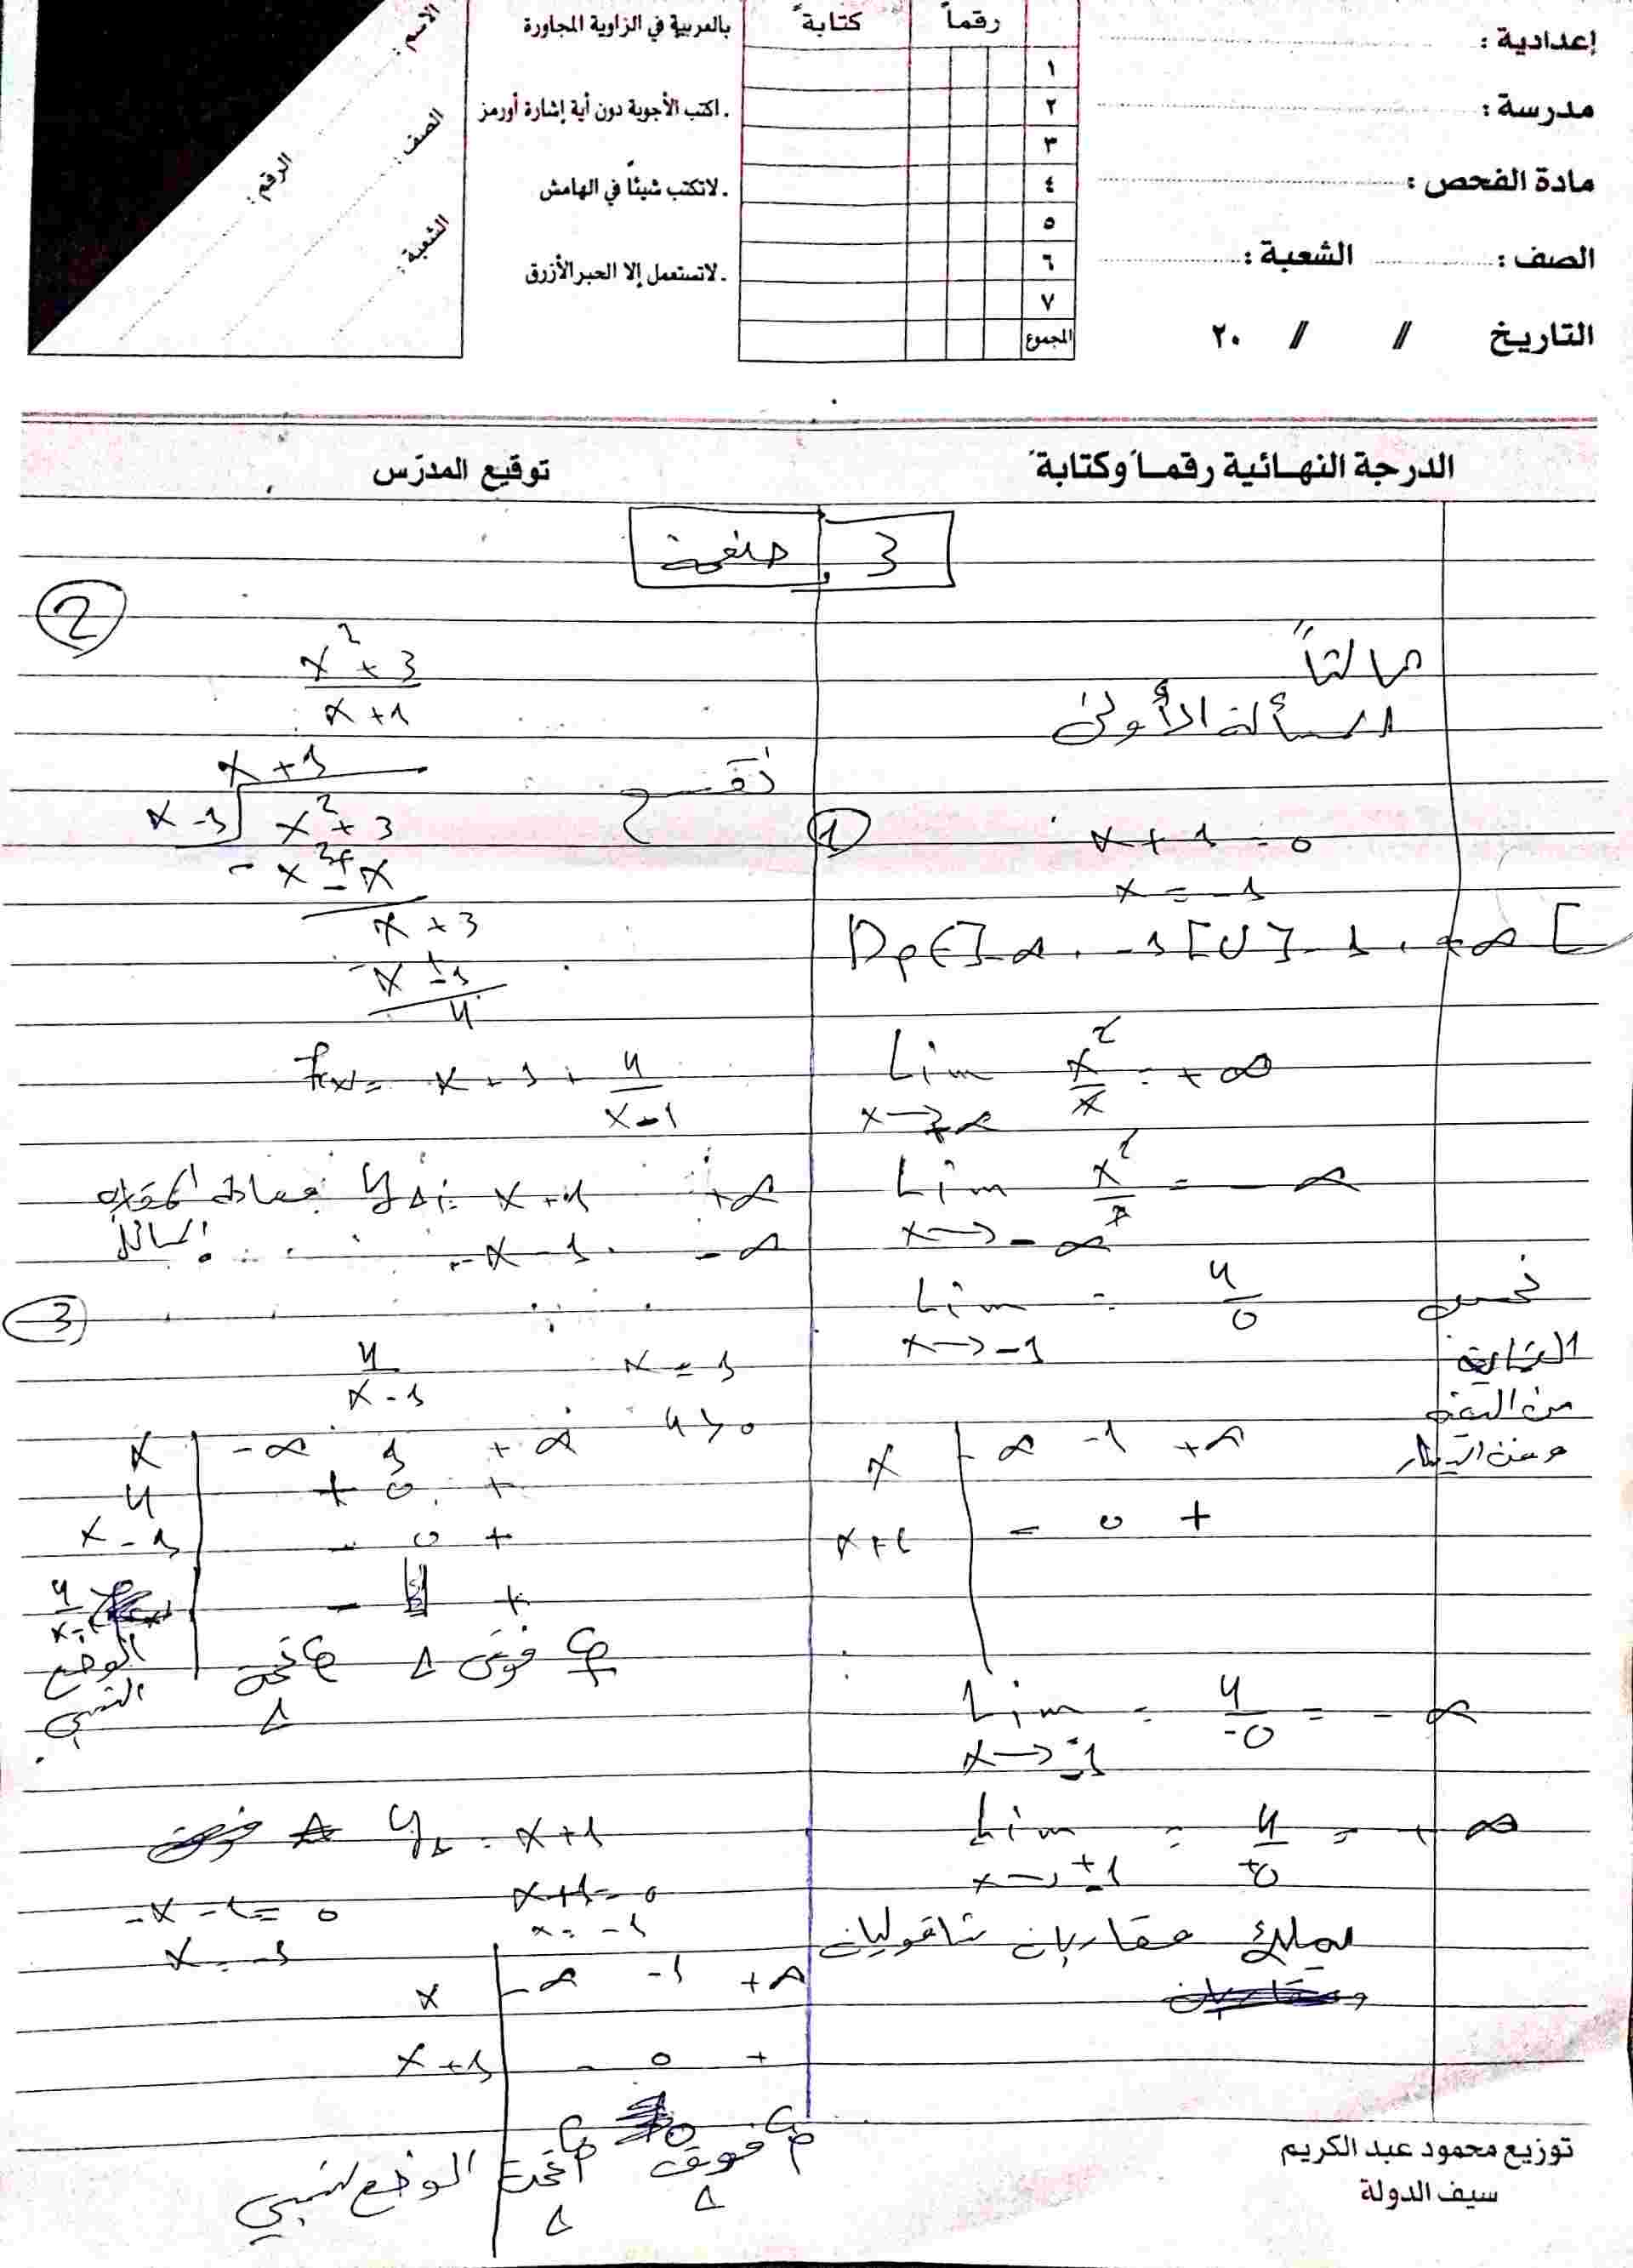 إعدادية :
مدرسة :
مادة الفحص :
الصف : الشعبة :
التاريخ // // ٢٠
رقماً كتابة
١
٢
٣
٤
٥
٦
٧
المجموع
بالعربية في الزاوية المجاورة
. اكتب الأجوبة دون أية إشارة أورمز
. لاتكتب شيئاً في الهامش
. لاتستعمل إلا الحبر الأزرق
الاسم :
الصف :
الرقم :
الشعبة :
الدرجة النهائية رقماً وكتابة
توقيع المدرّس
3 صفحة
ثالثاً
المسألة الأولى
① x + 1 = 0
x = -1
Lim x²/x = +∞
x→+∞
Lim x²/x = -∞
x→-∞
Lim = 4/0
x→-1
x -∞ -1 +∞
x+1 - 0 +
Lim = 4/-0 = -∞
x→-1
Lim = 4/+0 = +∞
x→-1
يملك مقاربان شاقوليان
②
x² + 3
x + 1
x + 1
x - 1 x² + 3
x + 3
4
f(x) = x + 1 + 4/(x-1)
yΔ = x + 1 +∞
-x - 1 -∞
③
4/(x-1) x = 1
4 > 0
x -∞ 1 +∞
4 + 0 +
x - 1 - 0 +
4/(x-1) - +
الوضع النسبي
C تحت Δ C فوق Δ
yΔ = x + 1
x + 1 = 0
x = -1
-x - 1 = 0
x = -1
x -∞ -1 +∞
x + 1 - 0 +
الوضع النسبي C تحت Δ C فوق Δ
توزيع محمود عبد الكريم
سيف الدولة